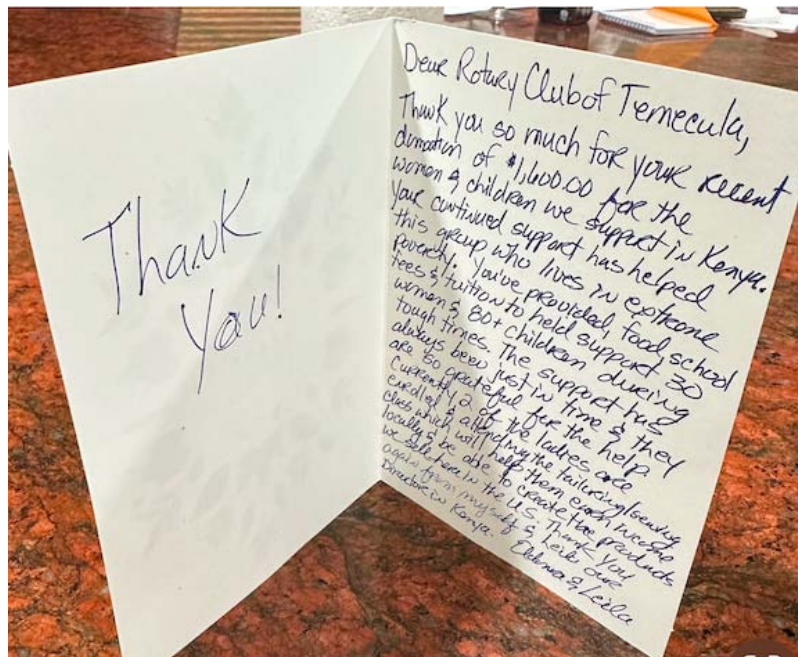 Thank
You!
Dear Rotary Club of Temecula,
Thank you so much for your recent
donation of $1,600.00 for the
women & children we support in Kenya.
Your continued support has helped
this group who lives in extreme
poverty. You've provided, food, school
fees & tuition to held support 30
women & 80+ children during
tough times. The support has
always been just in time & they
are so grateful for the help.
Currently 2 of the ladies are
enrolled & attending the tailoring/sewing
class which will help them earn income
locally & be able to create the products
we sell here in the U.S. Thank you
again from myself & Leila our
Director in Kenya.
& Leila